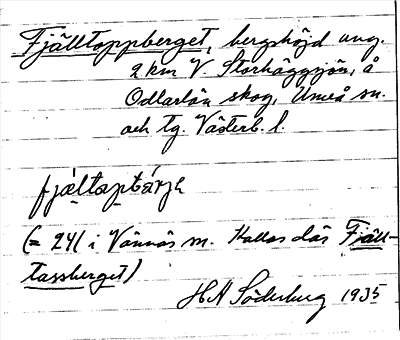 Fjälltoppberget, bergshöjd ung.
2 km V. Storhäggsjön, å
Odlarlån skog, Umeå sn.
och tg. Västerb. l.
fjæ̀ltaptárjə
(= 241 i Vännäs sn. Kallas där Fjäll-
tassberget)
H A Söderberg 1935